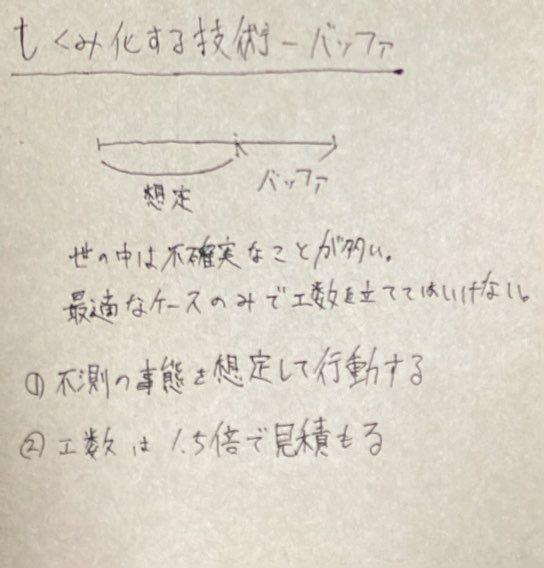 しくみ化する技術ーバッファ
想定
バッファ
世の中は不確実なことが多い。
最適なケースのみで工数を立ててはいけない。
① 不測の事態を想定して行動する
② 工数は1.5倍で見積もる